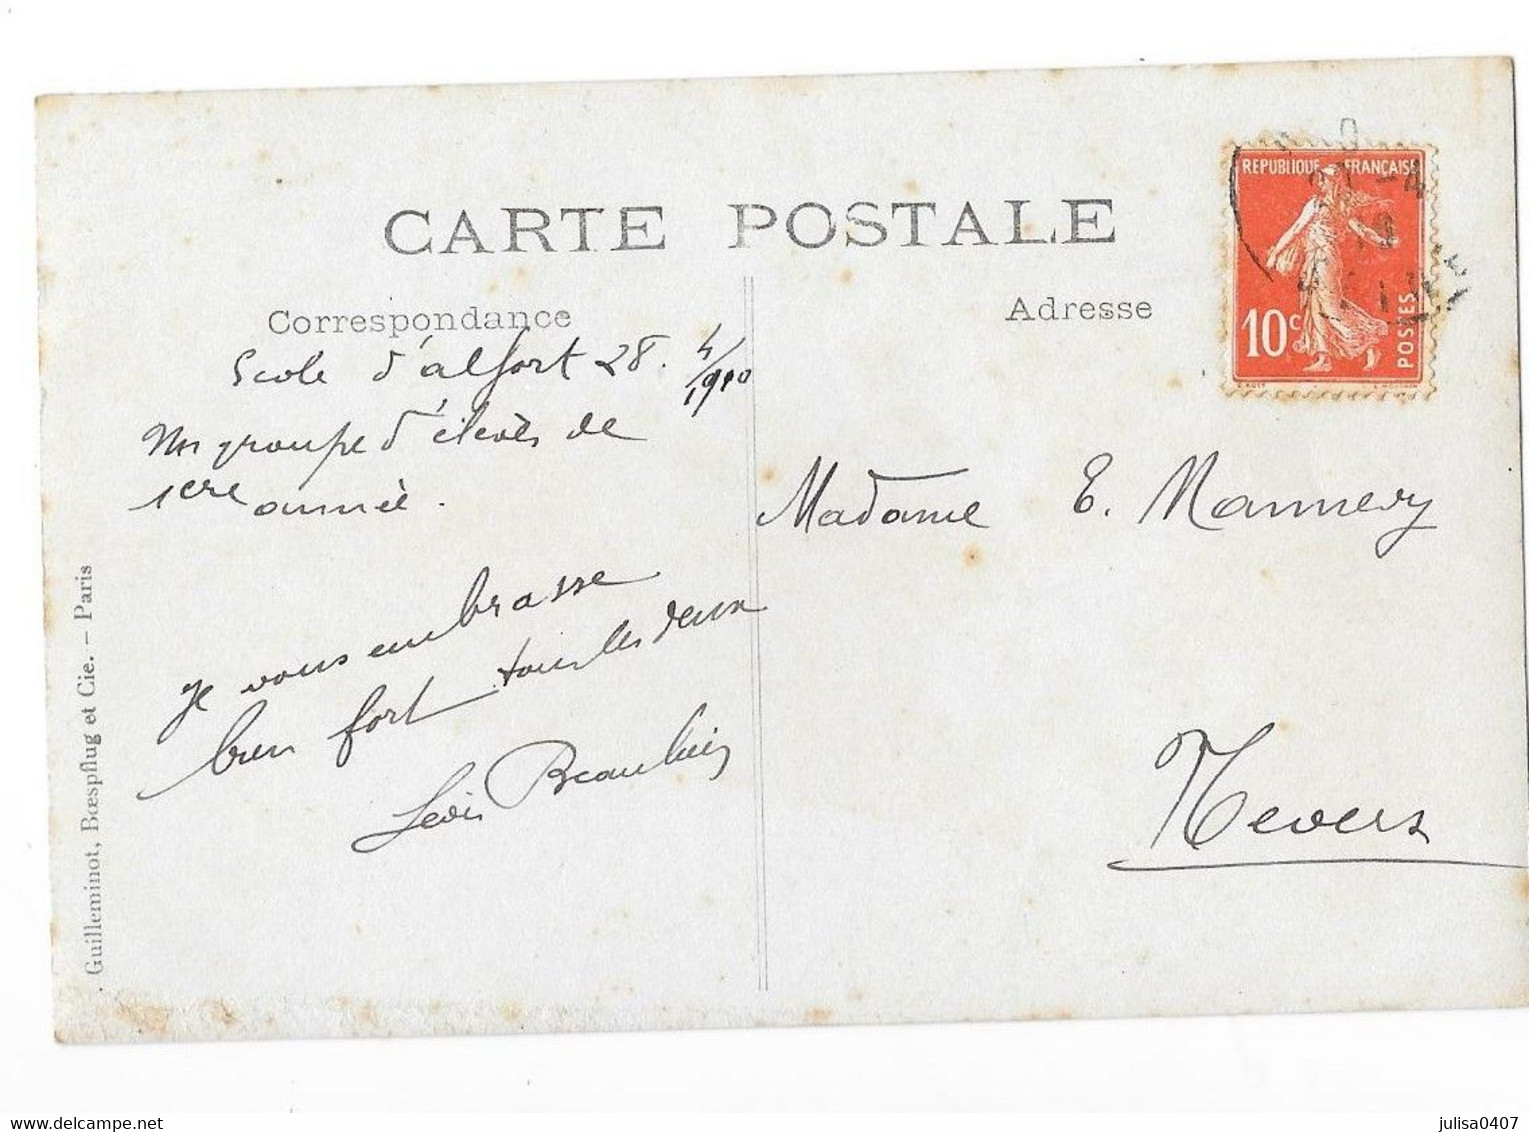 CARTE POSTALE
Correspondance
Adresse
REPUBLIQUE FRANÇAISE
10c
POSTES
Ecole d'alfort 28. 4/1910
un groupe d'élèves de
1ere année.
je vous embrasse
bien fort tous les deux
Beaulieu
Madame E. Mannevy
Nevers
Guilleminot, Bœspflug et Cie. – Paris
julisa0407